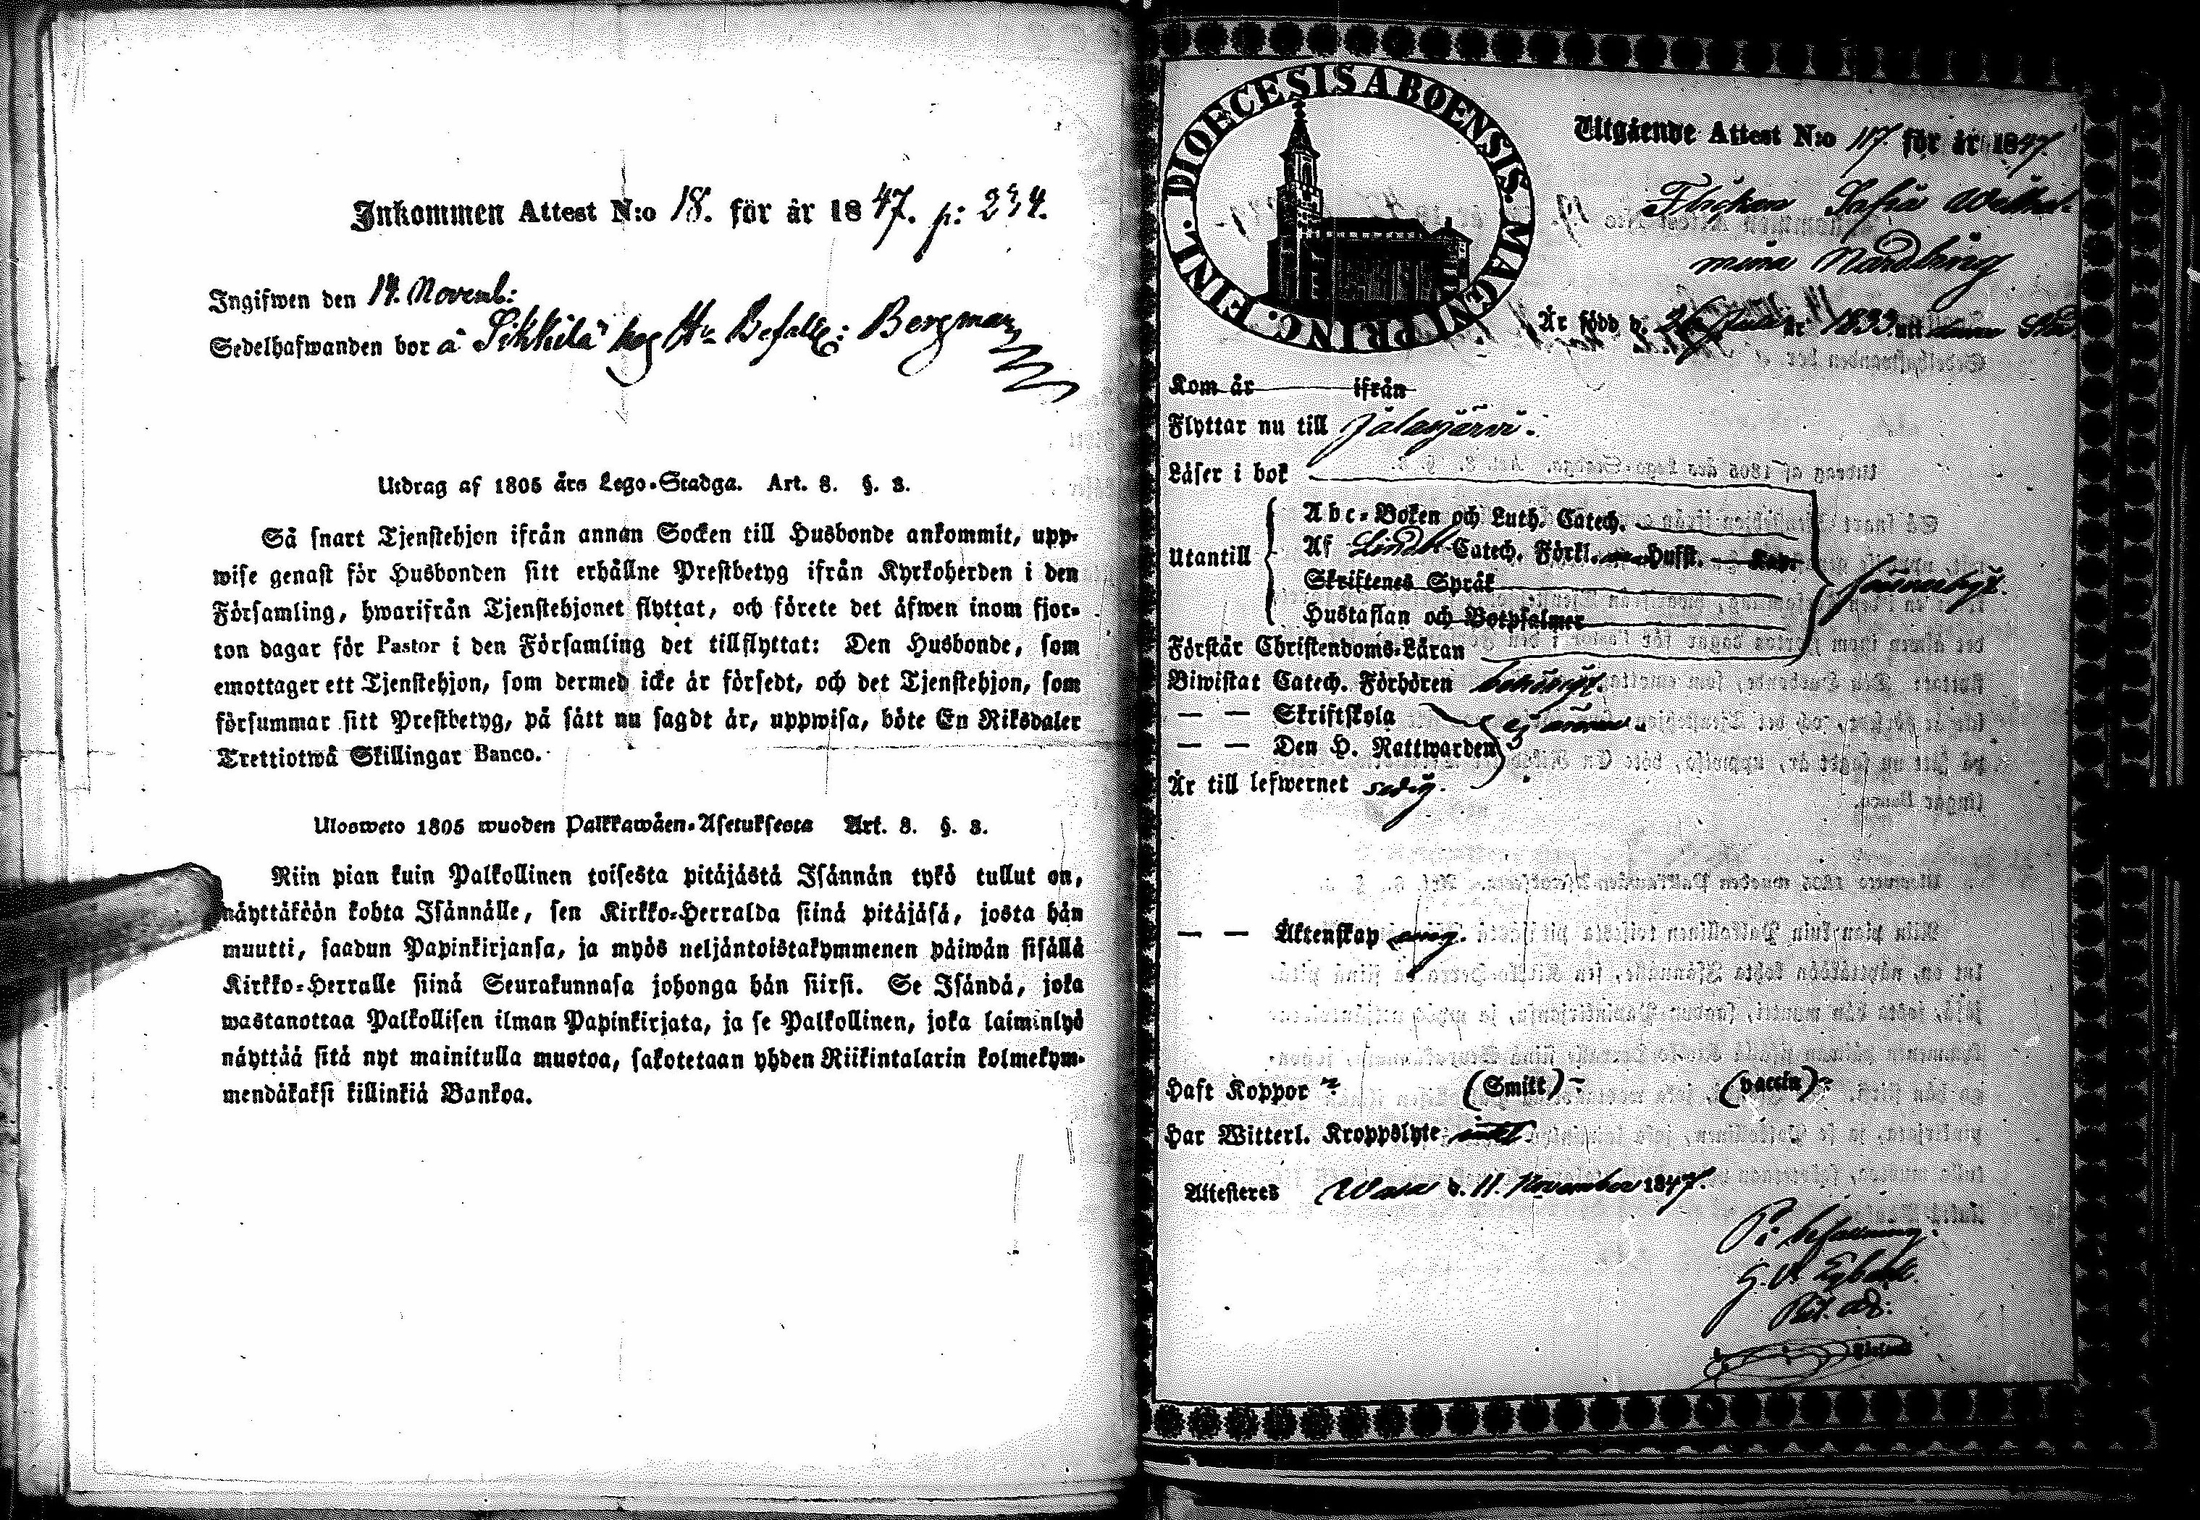 Inkommen Attest N:o 18. för år 1847. p: 234.
Ingifwen den 14. Novemb:
Sedelhafwanden bor å Sikkilä hos Hr Befallh: Bergman
Utdrag af 1805 års Lego-Stadga. Art. 8. §. 3.
Så snart Tjenstehjon ifrån annan Socken till Husbonde ankommit, upp-
wise genast för Husbonden sitt erhållne Prestbetyg ifrån Kyrkoherden i den
Församling, hwarifrån Tjenstehjonet flyttat, och förete det äfwen inom fjor-
ton dagar för Pastor i den Församling det tillflyttat: Den Husbonde, som
emottager ett Tjenstehjon, som dermed icke är försedt, och det Tjenstehjon, som
försummar sitt Prestbetyg, på sätt nu sagdt är, uppwisa, böte En Riksdaler
Trettiotwå Skillingar Banco.
Ulosweto 1805 wuoden Palkkawäen-Asetuksesta Art. 8. §. 3.
Niin pian kuin Palkollinen toisesta pitäjästä Isännän tykö tullut on,
näyttäköön kohta Isännälle, sen Kirkko-Herralda siinä pitäjäsä, josta hän
muutti, saadun Papinkirjansa, ja myös neljäntoistakymmenen päiwän sisällä
Kirkko-Herralle siinä Seurakunnasa johonga hän siirsi. Se Isändä, joka
wastanottaa Palkollisen ilman Papinkirjata, ja se Palkollinen, joka laiminlyö
näyttää sitä nyt mainitulla muotoa, sakotetaan yhden Riikintalarin kolmekym-
mendäkaksi killinkiä Bankoa.
DIOECESIS ABOENSIS. MAGNI PRINC. FINL.
Utgående Attest N:o 117 för år 1847.
Flickan Sofia Wilhel-
mina Nordling
Är född d. Juli år 1833 uti denna Stad
Kom år ifrån
Flyttar nu till Jalasjärvi.
Läser i bok
Utantill
Abc-Boken och Luth. Catech.
Af Catech. Förkl. Husst. Kap.
Skriftenes Språk
Hustaflan och Botpsalmer
försvarligt.
Förstår Christendoms-Läran
Biwistat Catech. Förhören behörigt.
— — Skriftskola
— — Den H. Nattwarden
ej ännu.
Är till lefwernet sedig.
— — Äktenskap
Haft Koppor (Smitt) (Vaccin)
Har Witterl. Kroppslyte intet
Attesteres Wasa d. 11. November 1847.
På befallning.